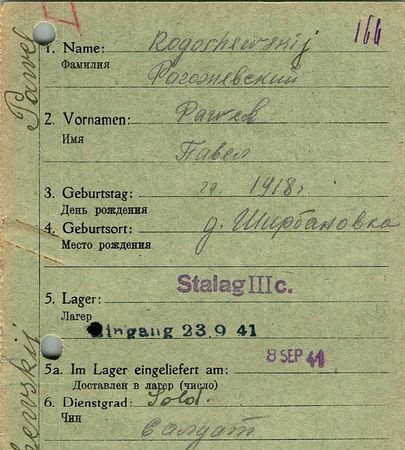 166
1. Name: Rogoshewskij
Фамилия Рагожевский
2. Vornamen: Pawel
Имя Павел
3. Geburtstag: 1918 г
День рождения
4. Geburtsort: д. Ширбановка
Место рождения
Stalag III c.
5. Lager:
Лагер
Eingang 23. 9. 41
8 SEP 41
5a. Im Lager eingeliefert am:
Доставлен в лагер (число)
6. Dienstgrad: Sold.
Чин Салдат
Pawel